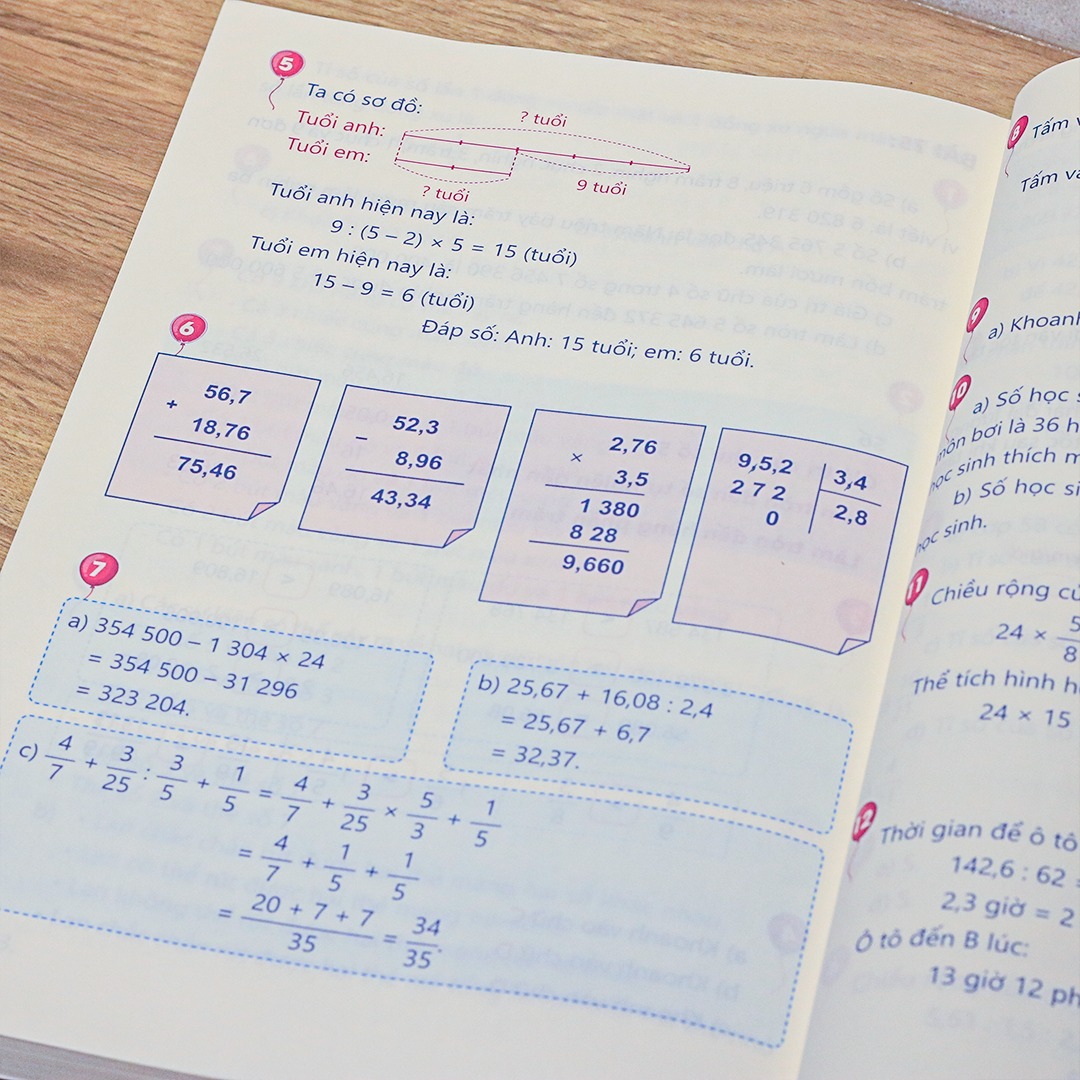 5
Ta có sơ đồ:
? tuổi
Tuổi anh:
Tuổi em:
? tuổi
9 tuổi
Tuổi anh hiện nay là:
9 : (5 – 2) × 5 = 15 (tuổi)
Tuổi em hiện nay là:
15 – 9 = 6 (tuổi)
Đáp số: Anh: 15 tuổi; em: 6 tuổi.
6
56,7
+
18,76
75,46
52,3
–
8,96
43,34
2,76
×
3,5
1 380
8 28
9,660
9,5,2
3,4
2 7 2
2,8
0
7
a) 354 500 – 1 304 × 24
= 354 500 – 31 296
= 323 204.
b) 25,67 + 16,08 : 2,4
= 25,67 + 6,7
= 32,37.
c) 4/7 + 3/25 : 3/5 + 1/5 = 4/7 + 3/25 × 5/3 + 1/5
= 4/7 + 1/5 + 1/5
= 20 + 7 + 7/35 = 34/35.
8
Tấm
Tấm
9
a) Khoanh
10
a) Số học
môn bơi là 36
học sinh thích
b) Số học
học sinh.
11
Chiều rộng
24 × 5/8
Thể tích hình
24 × 15
12
Thời gian để ô tô
142,6 : 62
2,3 giờ = 2
Ô tô đến B lúc:
13 giờ 12